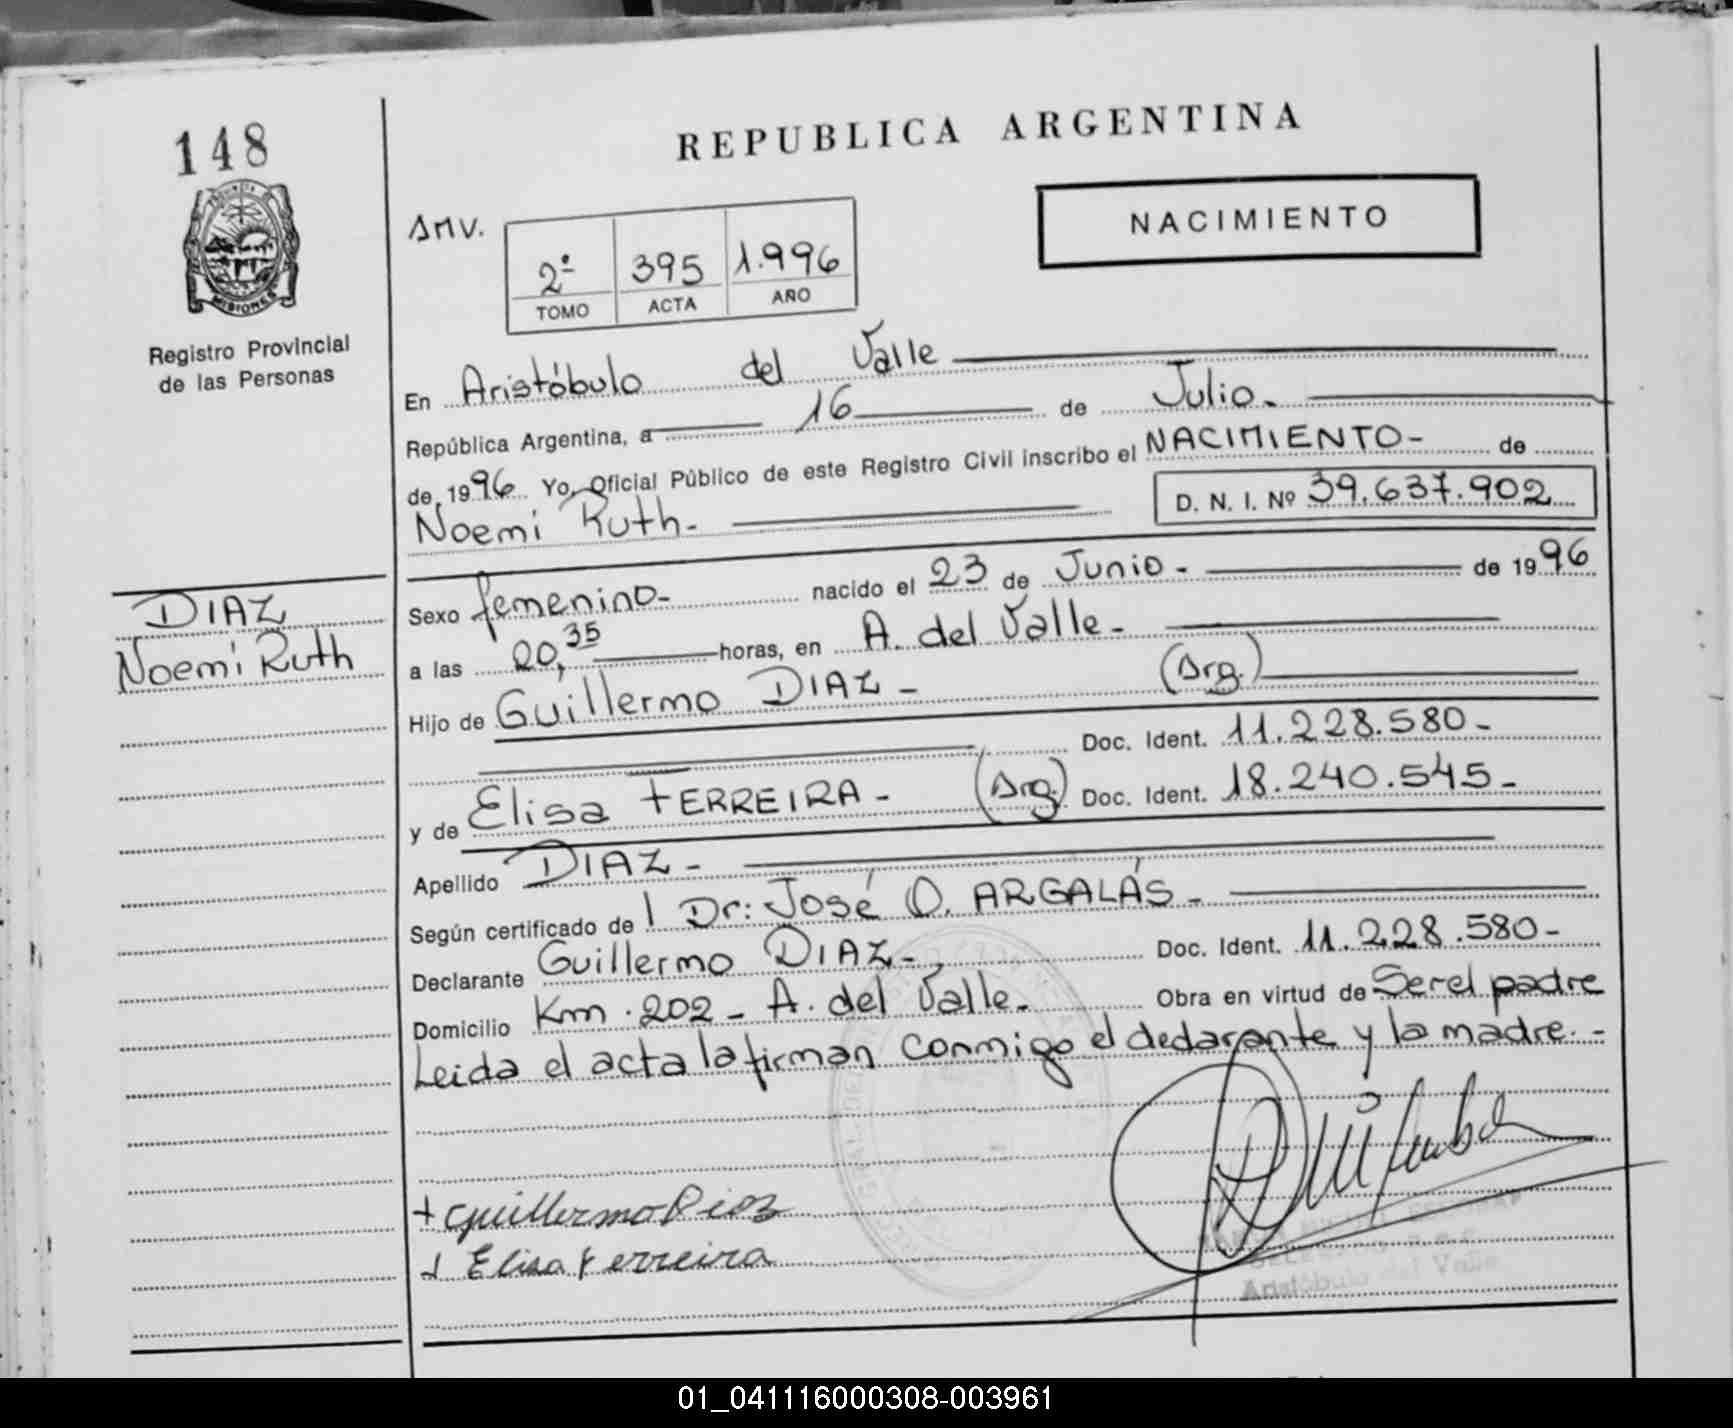 148
REPUBLICA ARGENTINA
NACIMIENTO
MISIONES
Registro Provincial
de las Personas
2º 395 1.996
TOMO ACTA AÑO
En Aristóbulo del Valle
República Argentina, a 16 de Julio.
de 1996 Yo, Oficial Público de este Registro Civil inscribo el NACIMIENTO- de
Noemi Ruth- D. N. I. Nº 39.637.902
DIAZ
Noemi Ruth
Sexo femenino- nacido el 23 de Junio - de 1996
a las 20,35 horas, en A. del Valle-
Hijo de Guillermo DIAZ - (Arg.)
Doc. Ident. 11.228.580-
y de Elisa FERREIRA - (Arg.) Doc. Ident. 18.240.545-
Apellido DIAZ -
Según certificado de Dr: José O. ARGALÁS-
Declarante Guillermo DIAZ- Doc. Ident. 11.228.580-
Domicilio Km. 202- A. del Valle- Obra en virtud de Ser el padre
Leida el acta la firman conmigo el declarante y la madre.-
+ Guillermo Diaz
+ Elisa Ferreira
Aristóbulo del Valle
01_041116000308-003961